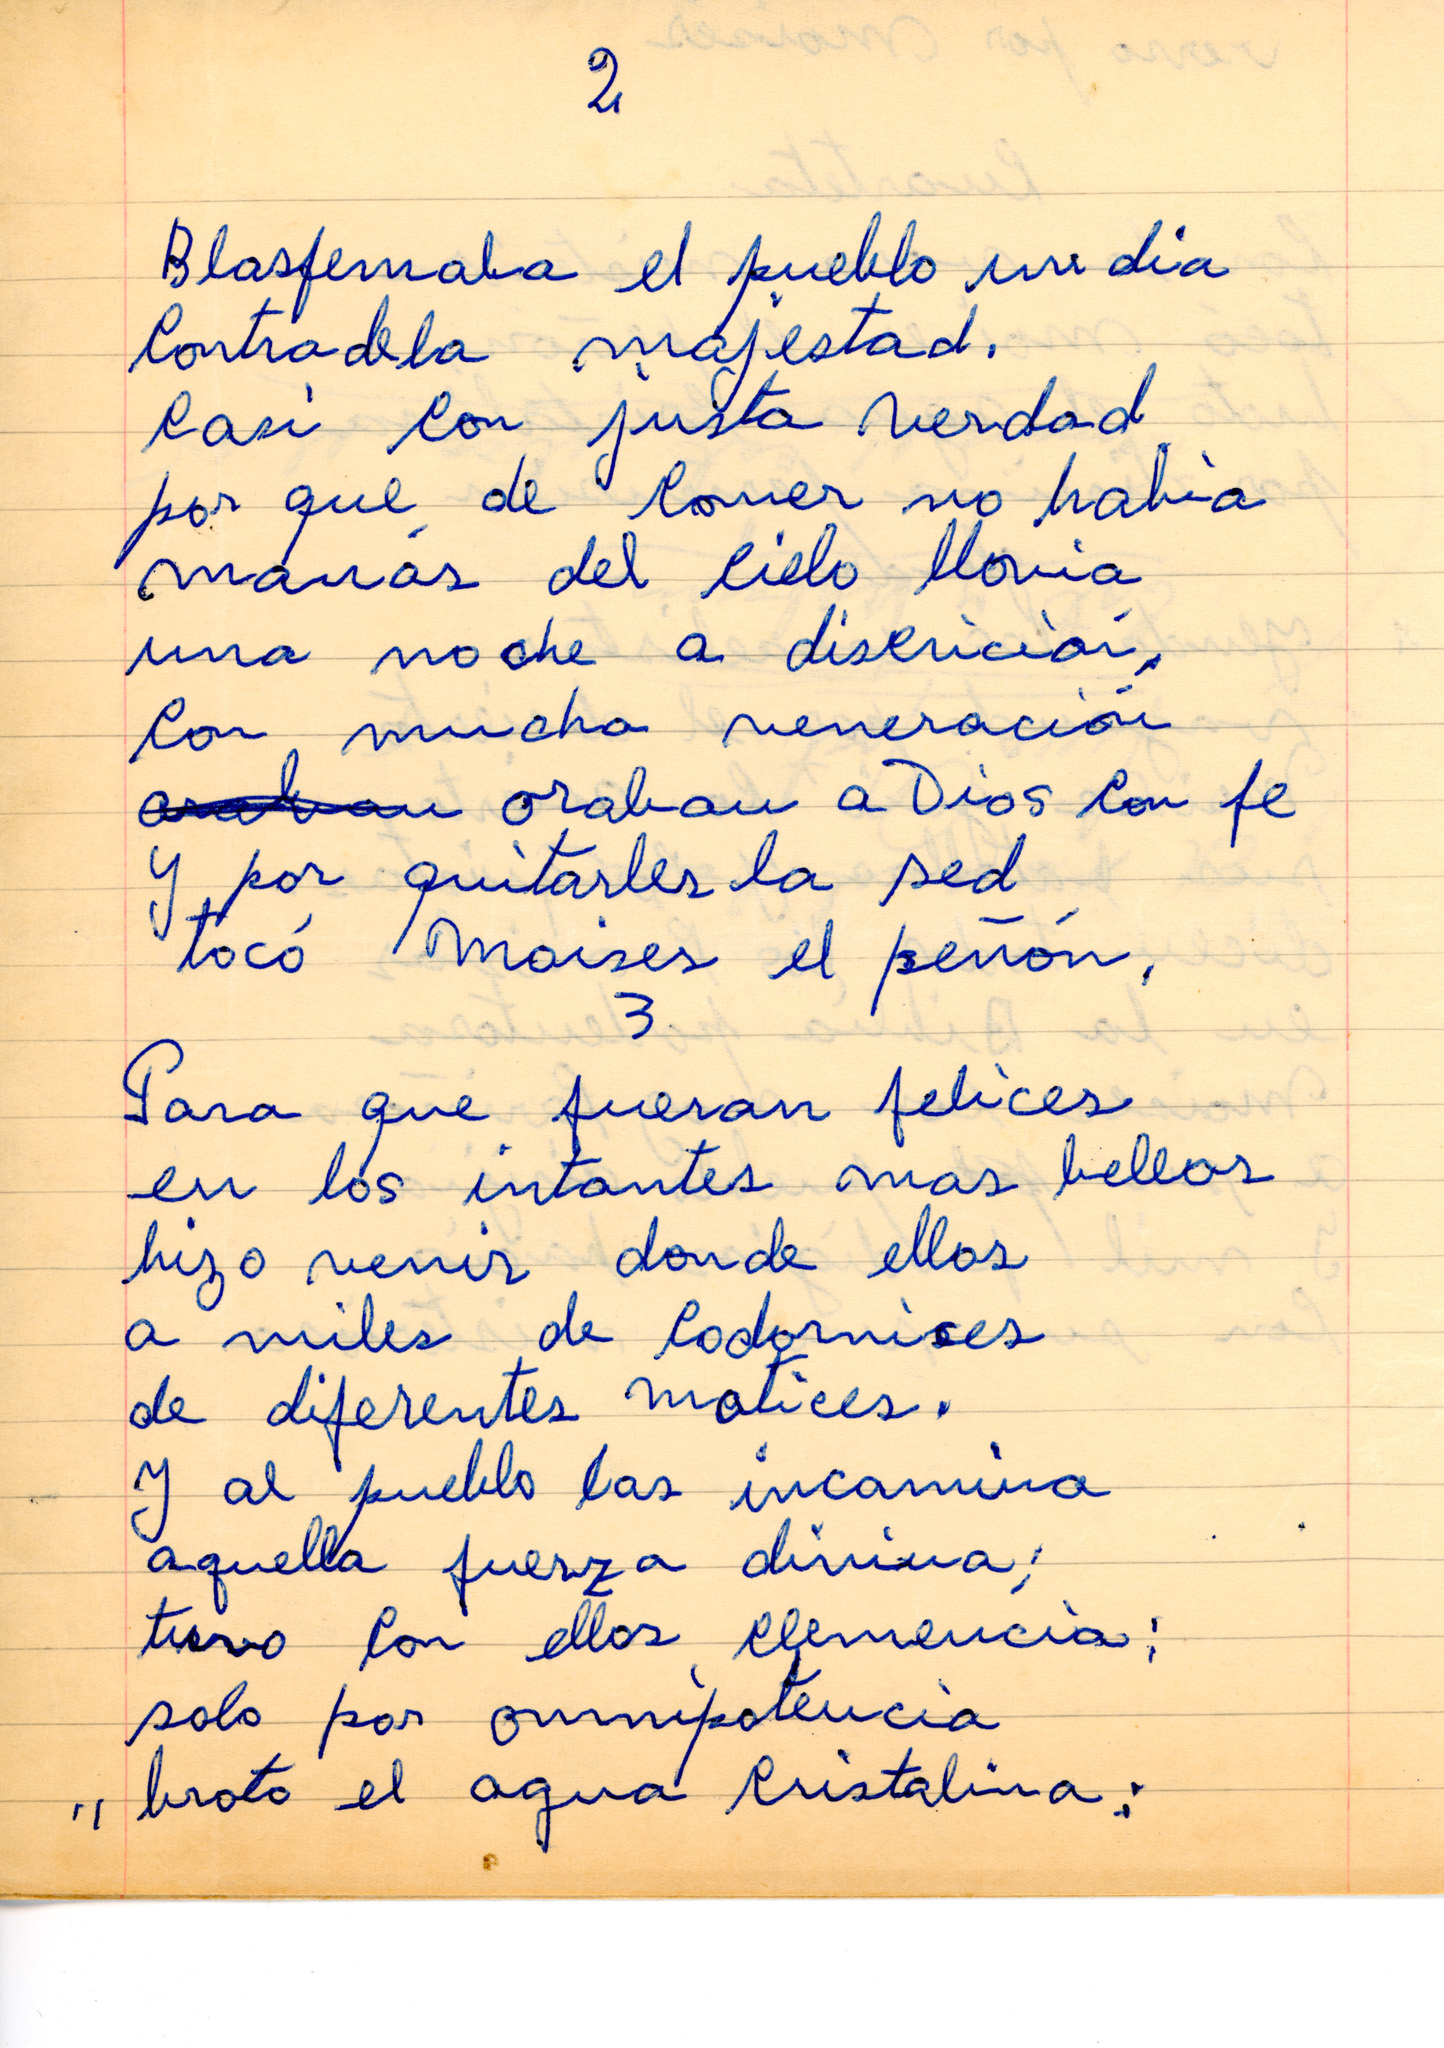 2
Blasfemaba el pueblo un dia
Contra de la majestad.
Casi con justa verdad
por que de comer no habia
manás del cielo llovia
una noche a discrición,
con mucha veneración
oraban a Dios con fe
Y por quitarles la sed
tocó Moises el peñón,
3
Para que fueran felices
en los intantes mas bellos
hizo venir donde ellos
a miles de codornices
de diferentes matices.
Y al pueblo las incamina
aquella fuerza divina;
tuvo con ellos clemencia;
solo por omnipotencia
,, broto el agua cristalina;